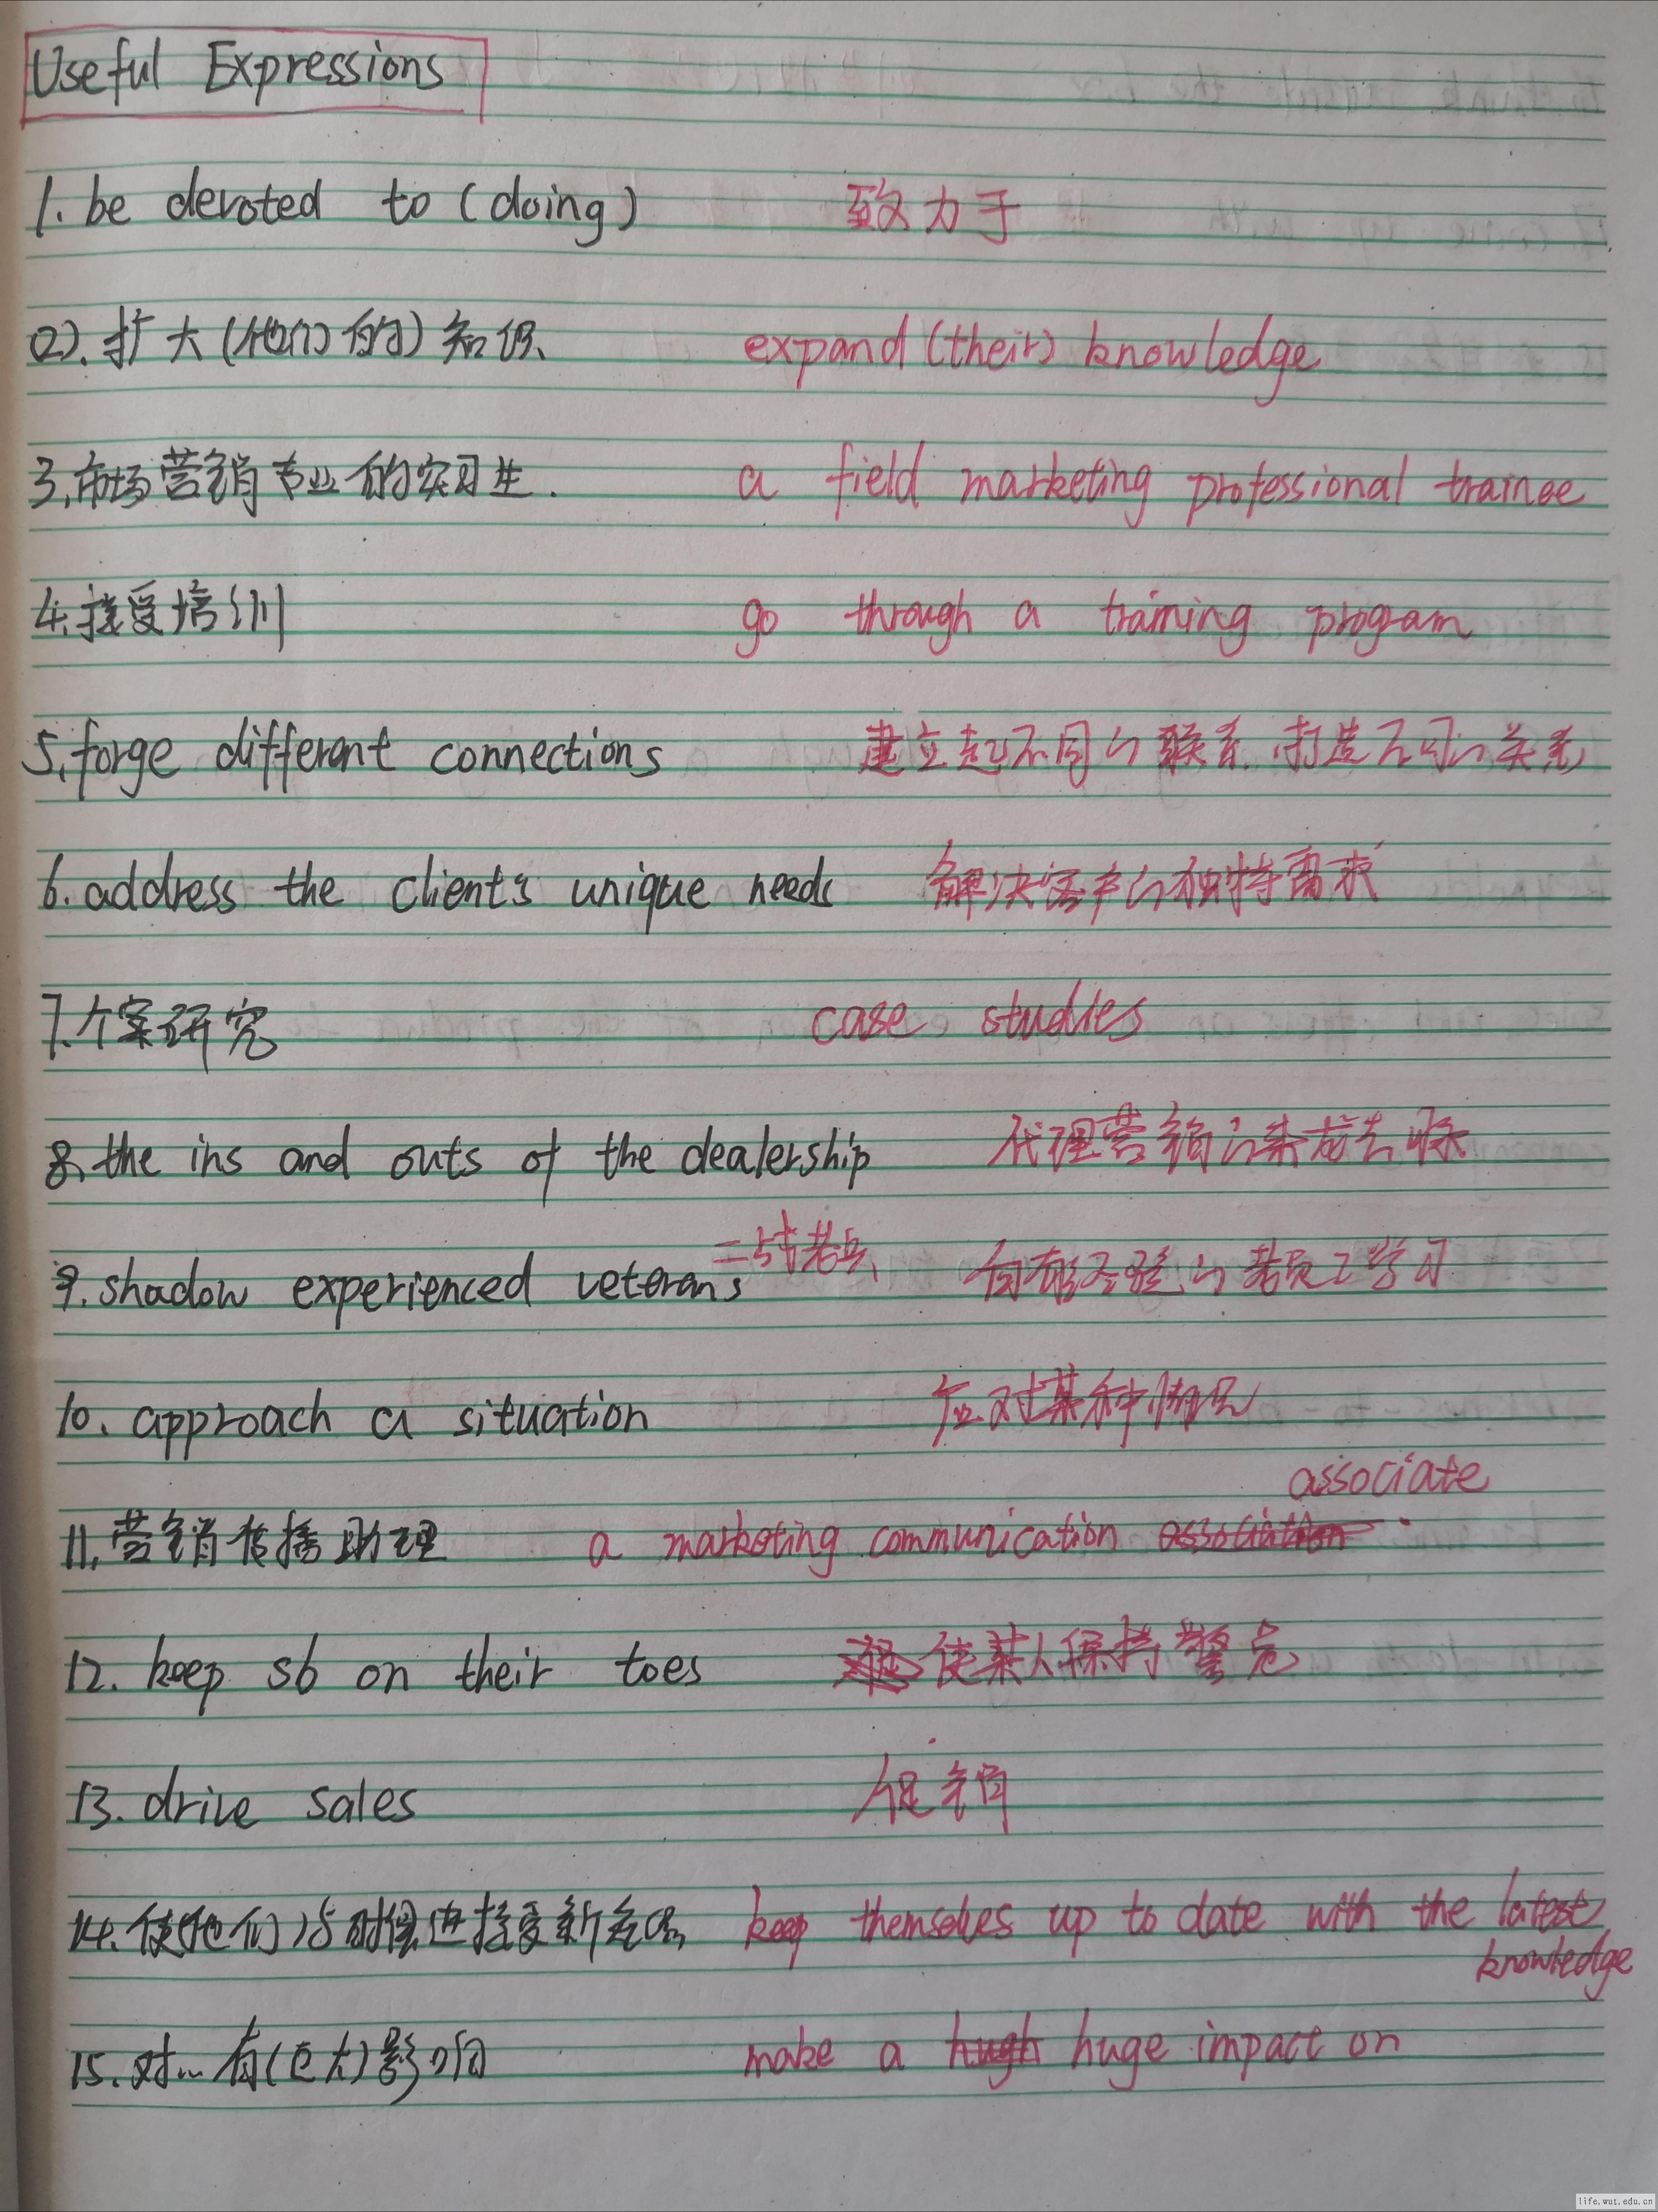 Useful Expressions
1. be devoted to (doing) 致力于
2). 扩大(他们的)知识、 expand (their) knowledge
3. 市场营销专业的实习生. a field marketing professional trainee
4. 接受培训 go through a training program
5. forge different connections 建立起不同的联系、打造不同的关系
6. address the client's unique needs 解决客户的独特需求
7. 个案研究 case studies
8. the ins and outs of the dealership 代理营销的来龙去脉
二战老兵
9. shadow experienced veterans 向有经验的老员工学习
10. approach a situation 应对某种情况
associate
11. 营销传播助理 a marketing communication association
12. keep sb on their toes 使某人保持警觉
13. drive sales 促销
14. 使他们与时俱进接受新知识 keep themselves up to date with the latest
knowledge
15. 对...有(巨大)影响 make a hugh huge impact on
life.wut.edu.cn